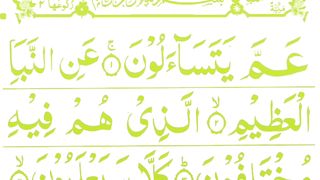 عَمَّ يَتَسَآءَلُوْنَ ۚ‏﴿۱﴾ عَنِ النَّبَاِ
الْعَظِيْمِ ۙ‏﴿۲﴾ الَّذِىْ هُمْ فِيْهِ
مُخْتَلِفُوْنَ ؕ‏﴿۳﴾ كَلَّا سَيَعْلَمُوْنَ ۙ‏﴿۴﴾